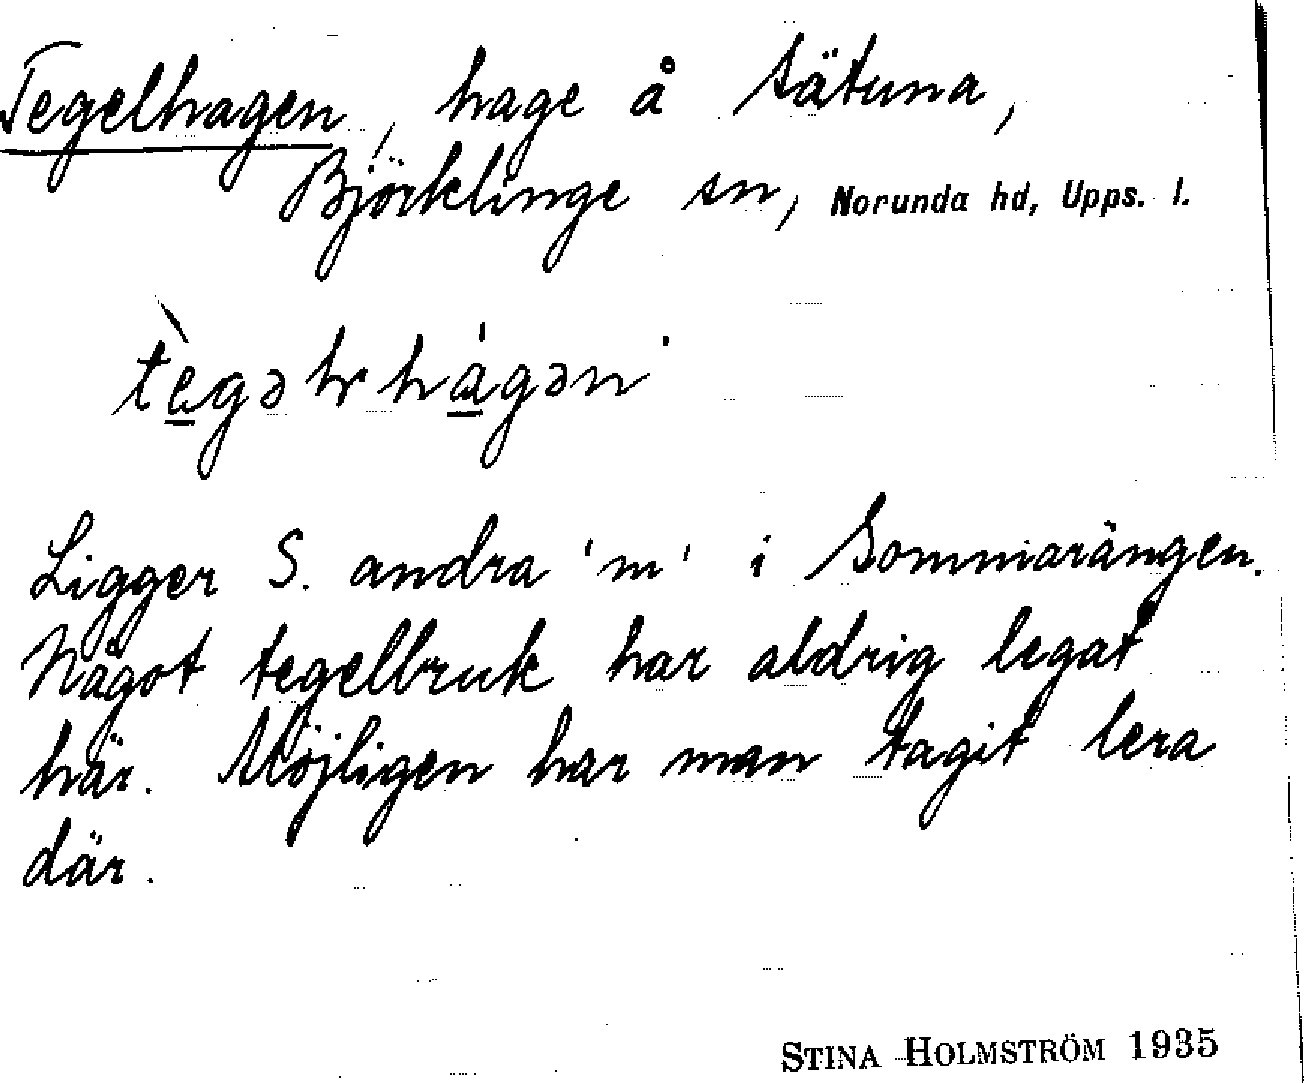 Tegelhagen, hage å Sätuna,
Björklinge sn, Norunda hd, Upps. l.
tègəlrhágən
Ligger S. andra 'm' i Sommarängen.
Något tegelbruk har aldrig legat
här. Möjligen har man tagit lera
där.
STINA HOLMSTRÖM 1935